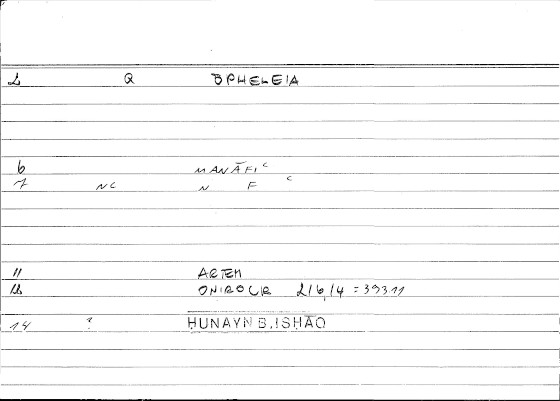 2 Q BPHELEIA
6 MANĀFIᶜ
7 NC N F ᶜ
11 ARTEM
12 ONIROCR 2/6/4 = 39311
14 ? HUNAYN B.ISḤĀQ